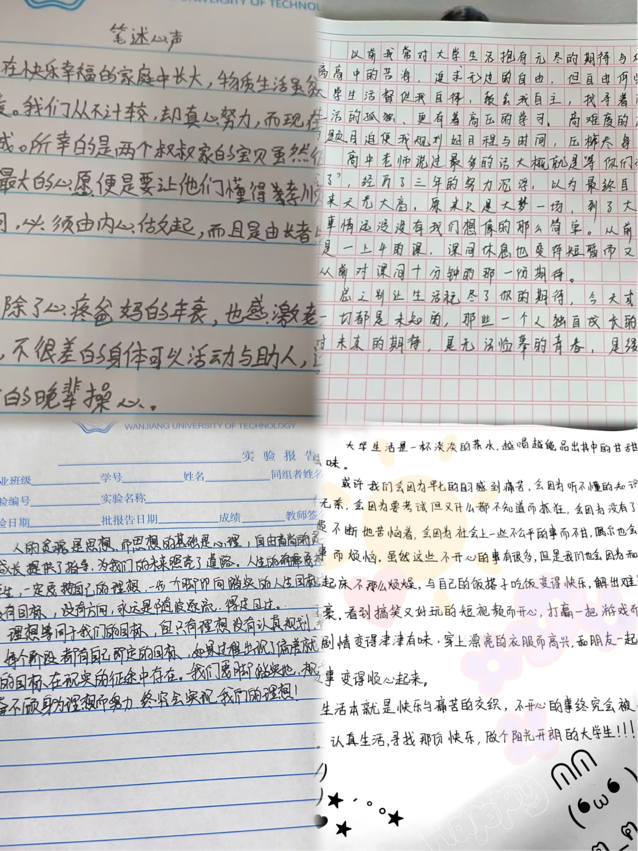 UNIVERSITY OF TECHNOL
笔述心声
在快乐幸福的家庭中长大，物质生活虽
我们从不计较，却真心努力，而现在
所幸的是两个叔叔家的宝贝虽然
最大的心愿便是要让他们懂得孝顺
必须由内心做起，而且是由长者
除了心疼爸妈的年衰，也感激老
不很差的身体可以活动与助人，
的晚辈操心。
以前我常对大学生活抱有无尽的期待与
追求无边的自由，但自由何
学生活督促我自律，教会我自主，找寻着
活的孤独，更有着高压的学习，高难度的
题目迫使我规划好日程与时间，压榨太每
高中老师说过最多的话大概就是等你们
了"，经历了三年的努力沉淀，以为最终
来天光大亮，原来只是大梦一场，到了大
事情还没没有我们想像的那么简单。从前
是一上午的课，课间休息也变得短暂而又
从前对课间十分钟的那一份期待。
总之别让生活耗尽了你的期待，今天或
一切都是未知的，那些一个人独自成长的
对未来的期待，是无法临摹的青春，是
WANJIANG UNIVERSITY OF TECHNOLOGY
实 验 报 告
业班级 学号 姓名 同组者姓名
验编号 实验名称
验日期 批报告日期 成绩 教师签
人的灵魂是思想，而思想的基础是心理，自由有度的
成长提供了指导，为我们的未来照亮了道路。人生的
生，一定要把自己的理想，一步个脚印向踏实的人生目标
没有目标，没有方向，永远是
理想等同于我们的目标，但只有理想没有认真规划，
每个阶段都有自己所定的目标，如果过程出现了偏差就
的目标，在现实的征途中存在。我们要脚踏实地，
奋不顾身为理想而努力，终究会实现我们的理想！
大学生活是一杯淡淡的茶水，越喝越能品出其中的甘甜
味。
或许我们会因为早七的闹感到痛苦，会因为听不懂的知识
无奈，会因为要考试但又什么都不知道而抓狂，会因为没有了
不断地苦恼着，会因为社会上一些不公平的事而不甘，偶尔也会
事而烦恼。虽然这些不开心的事有很多，但是我们也会因为
起床不那么烦燥，与自己的饭搭子吃饭变得快乐，解出难
豪，看到搞笑又好玩的短视频而开心，打赢一把游戏而
剧情变得津津有味，穿上漂亮的衣服而高兴，和朋友一起
事变得顺心起来。
生活本就是快乐与痛苦的交织，不开心的事终究会被
认真生活，寻找那份快乐，做个阳光开朗的大学生!!!